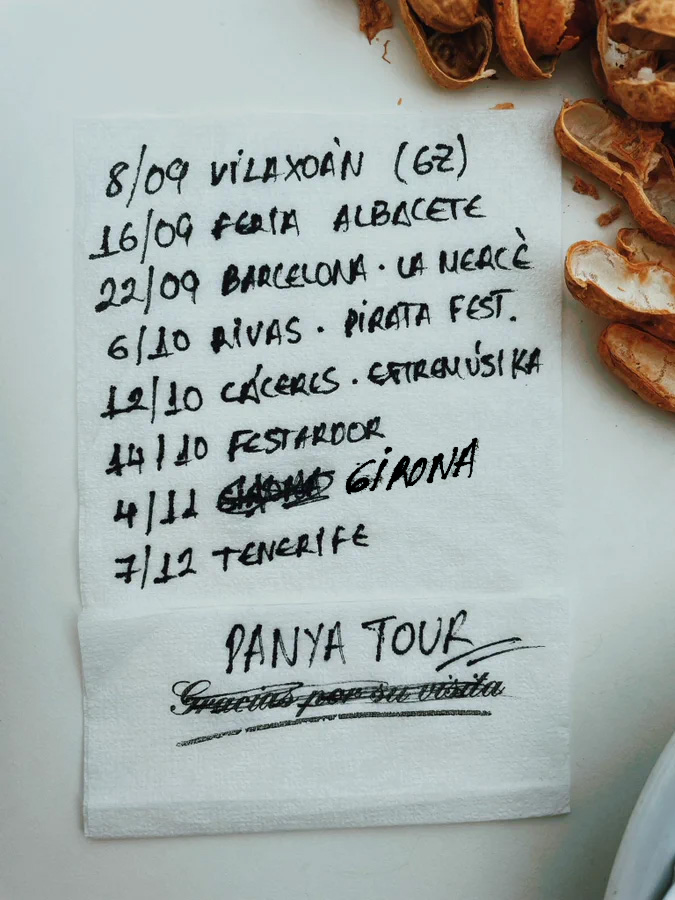 8/09 VILAXOÀN (GZ)
16/09 FERIA ALBACETE
22/09 BARCELONA · LA MERCÈ
6/10 RIVAS · PIRATA FEST.
12/10 CÁCERES · EXTREMÚSIKA
14/10 FESTARDOR
4/11 GIRONA
7/12 TENERIFE
PANYA TOUR
Gracias por su visita